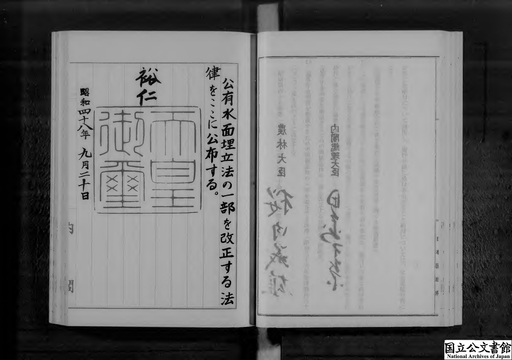 公有水面埋立法の一部を改正する法
律をここに公布する。
裕仁
天皇
御璽
昭和四十八年 九月二十日
内閣総理大臣
農林大臣
内閣
国立公文書館
National Archives of Japan